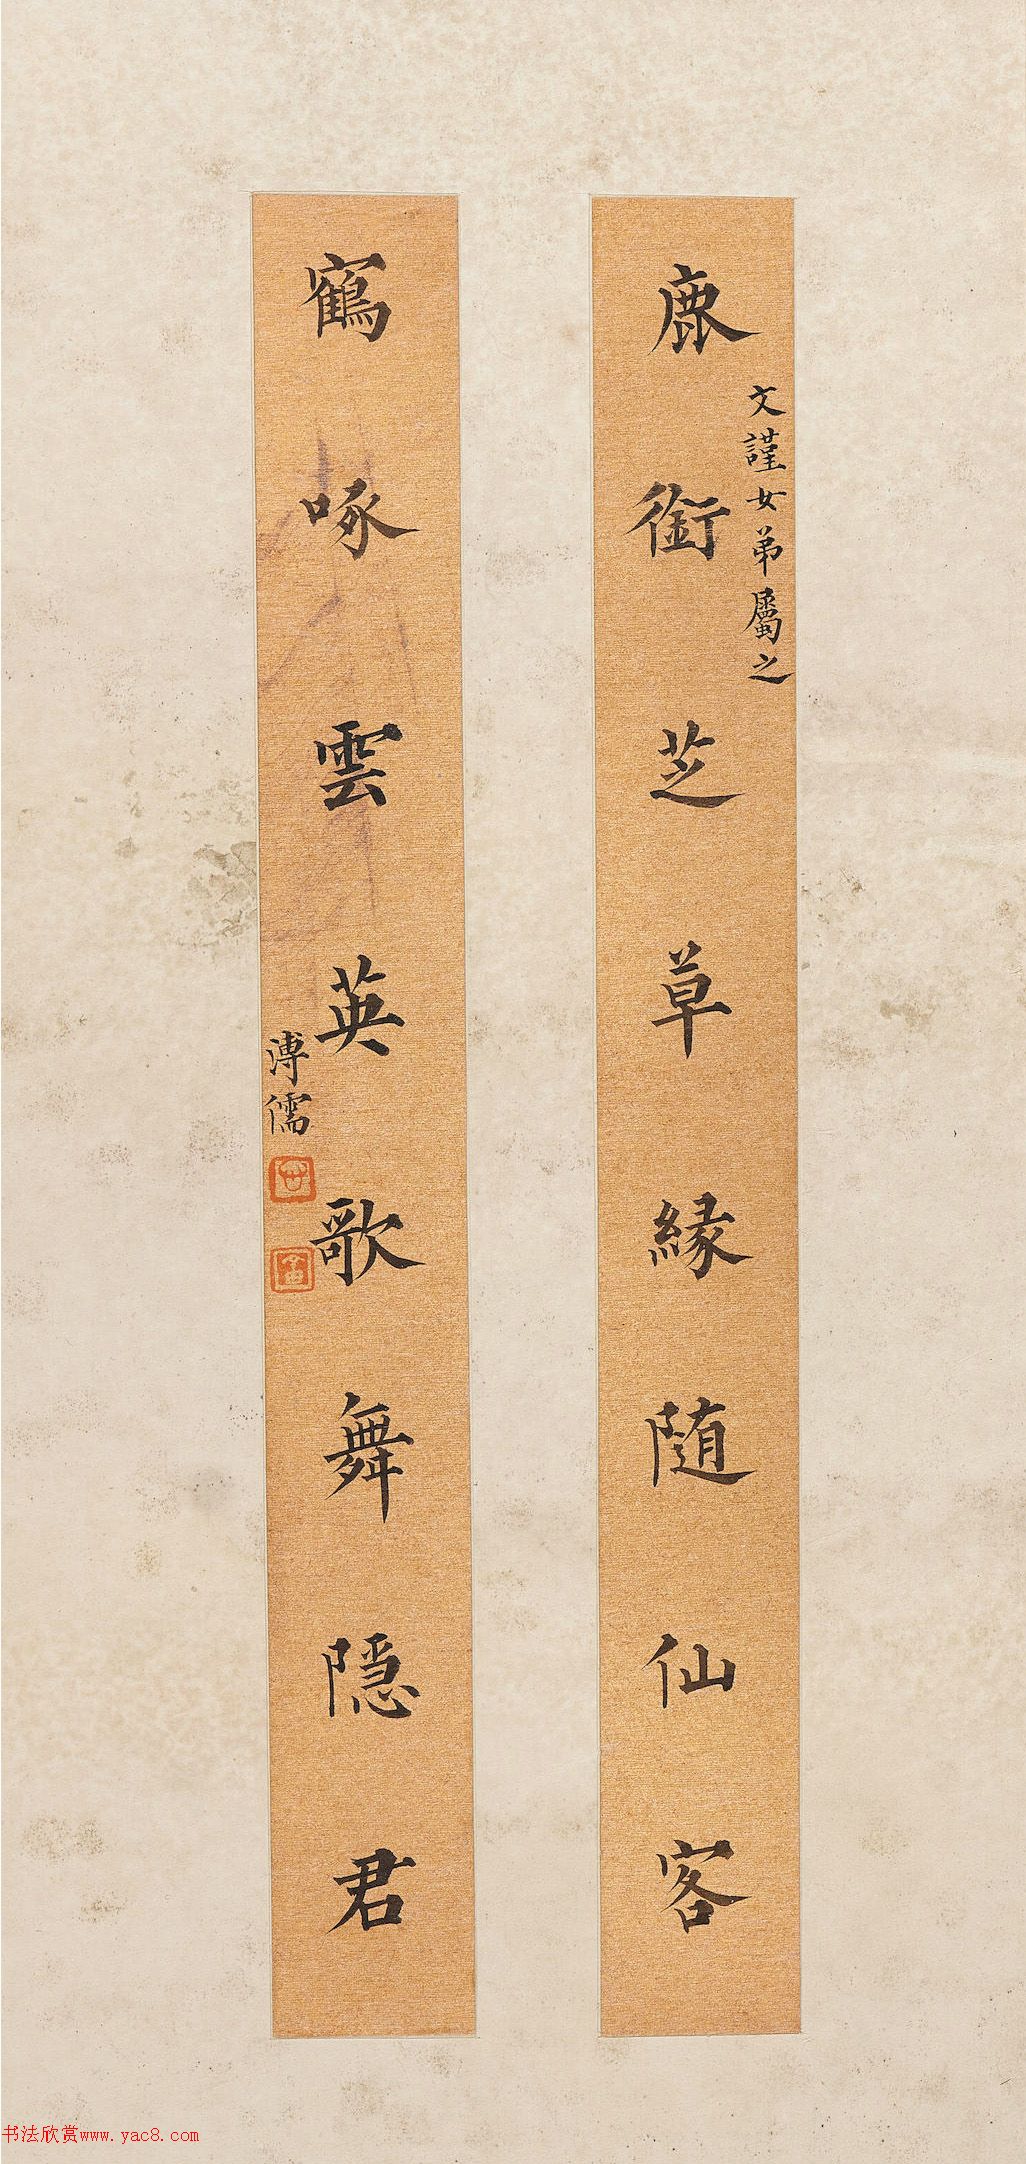 鹿銜芝草緣隨仙客
文謹女弟屬之
鶴啄雲英歌舞隱君
溥儒
书法欣赏www.yac8.com